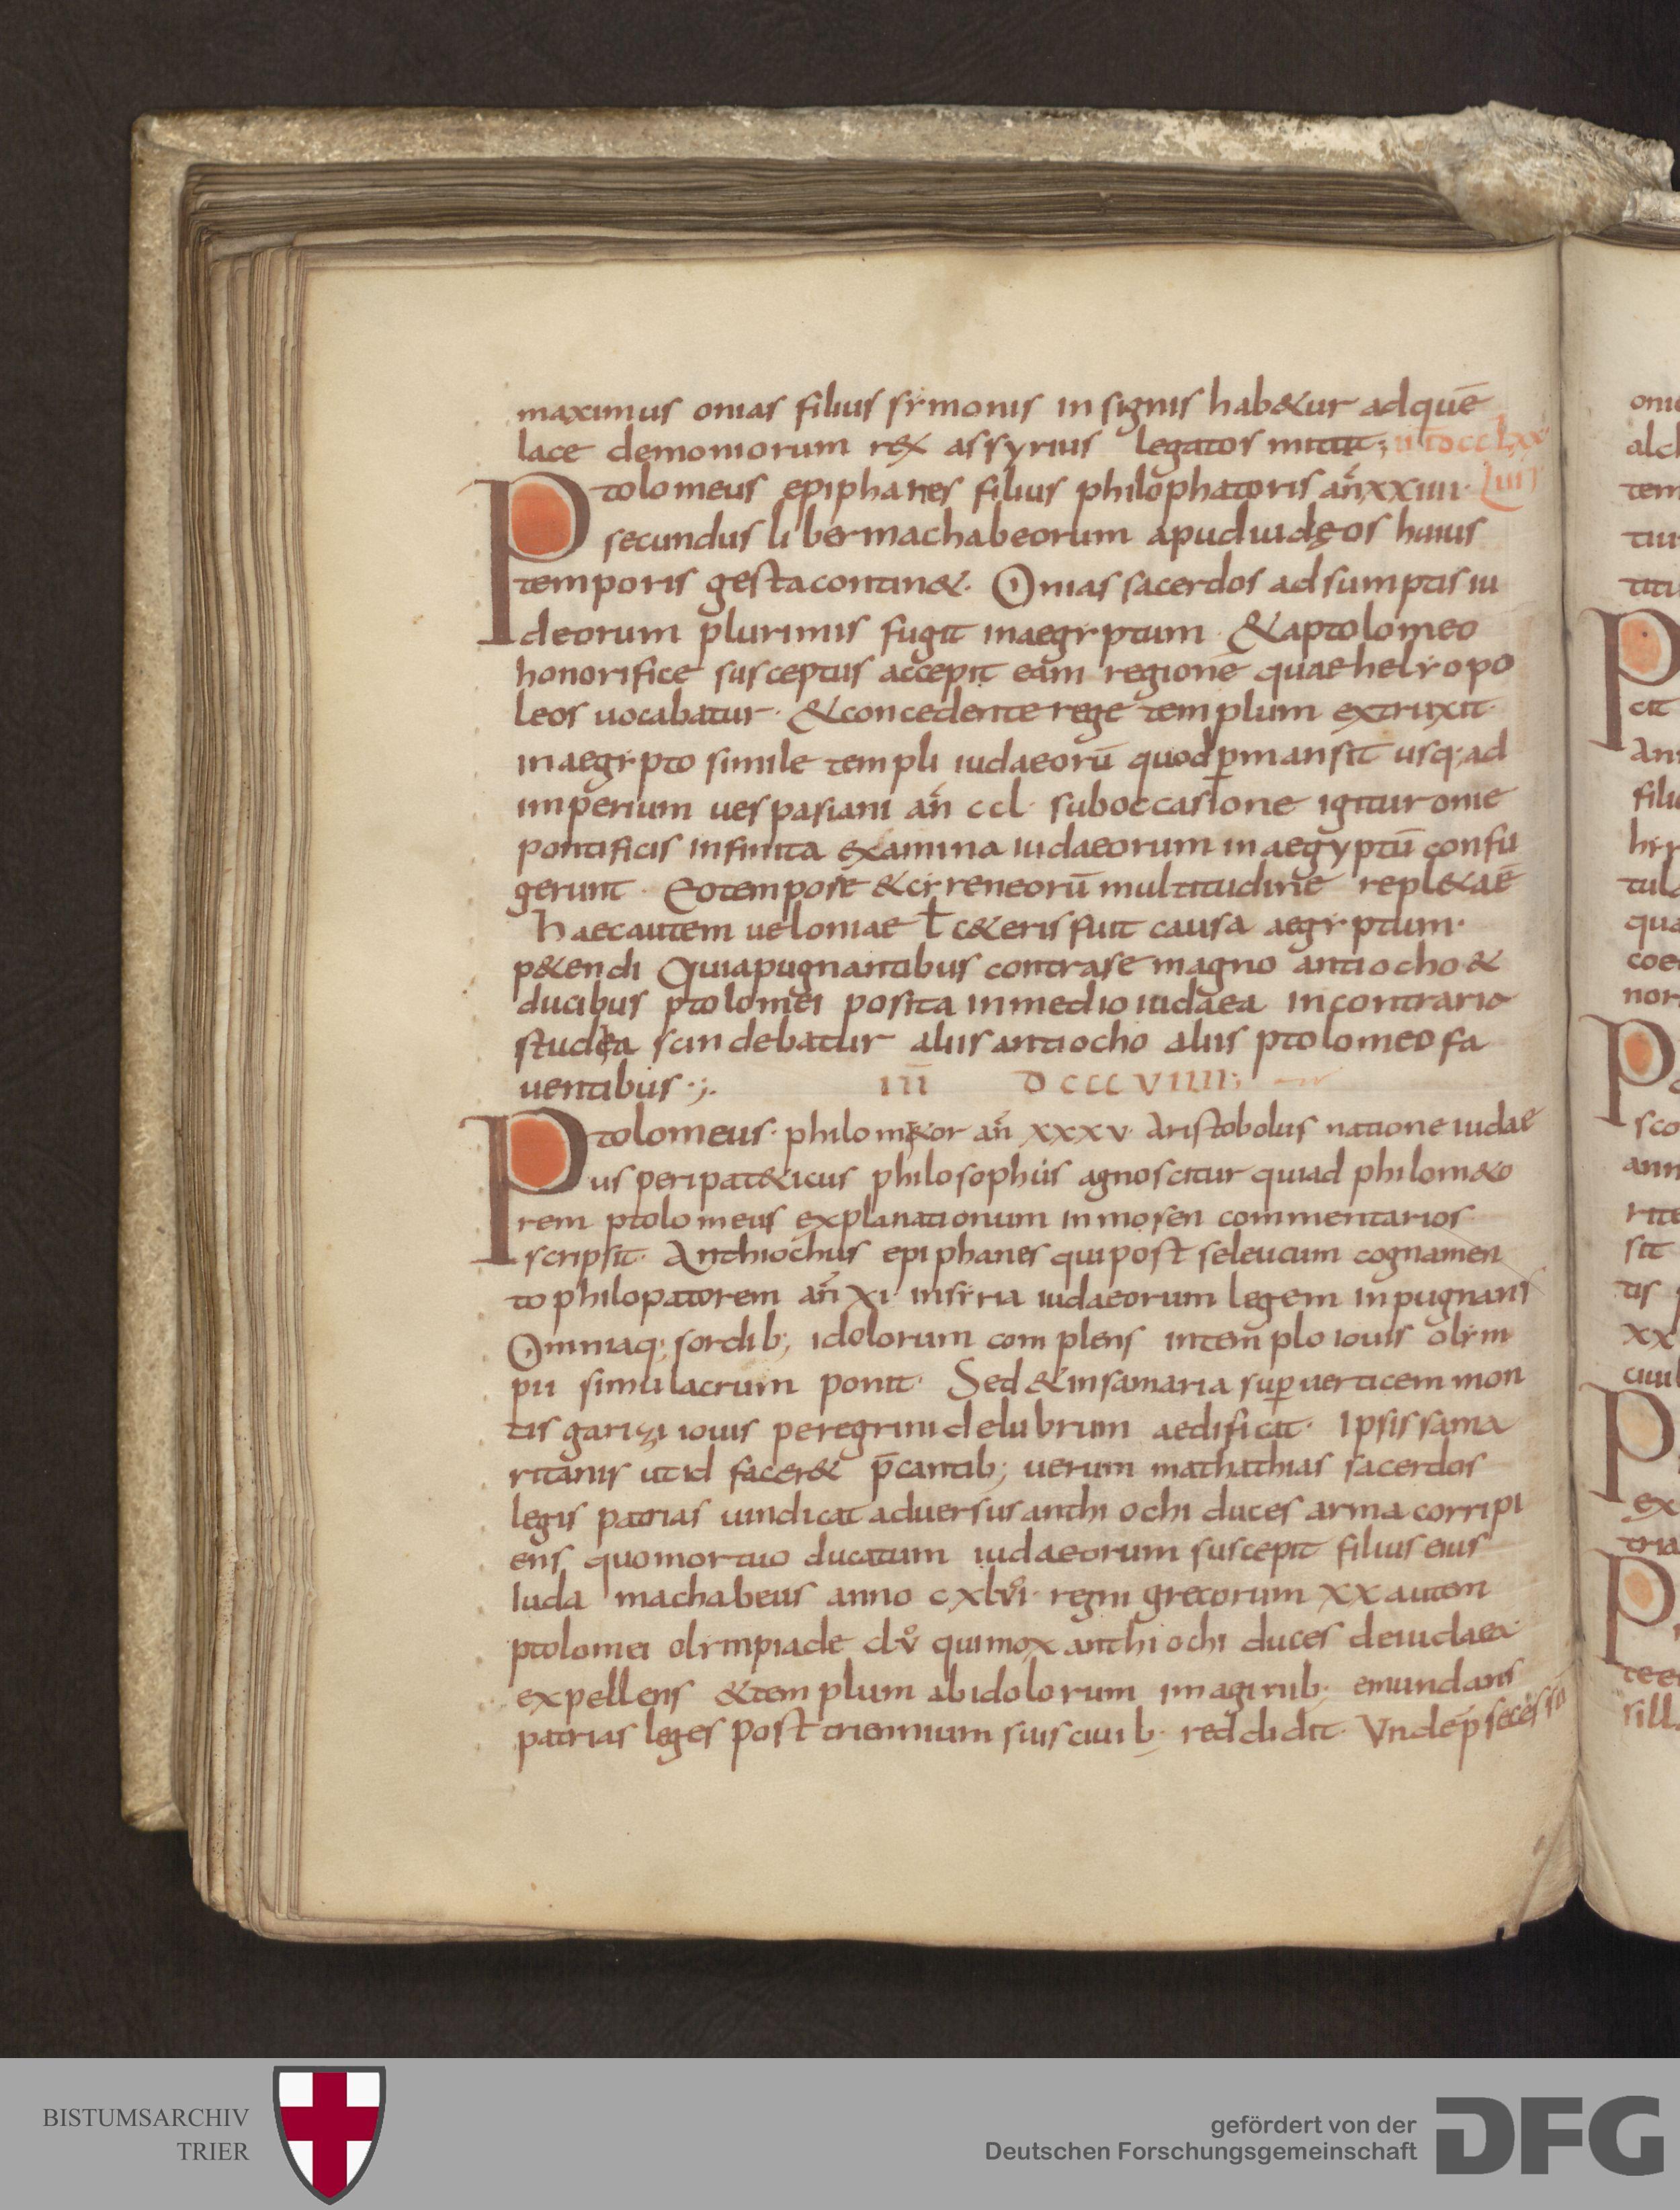 maximus onias filius sẏmonis insignis hab&ur adquē
lace demoniorum rex assyrius legatos mittit; 
Ptolomeus epiphanes filius philophatoris añ xxiiii·
secundus liber machabeorum apud iudęos huius
temporis gesta contin&· Onias sacerdos adsumptis iu
deorum plurimis fugit in aegẏptum· &a ptolomeo
honorifice susceptus accepit eam regionē quae helẏopo
leos uocabatur· & concedente rege templum extruxit·
in aegẏpto simile templi iudaeorū quod p̲mansit usq; ad
imperium uespasiani añ ccl· sub occasione igitur onie
pontificis infinita examina iudaeorum in aegyptū confu
gerunt· Eo tempore & cẏreneorū multitudine repl&ae
haec autem uel oniae ł c&eris fuit causa aegẏptum·
p&endi Quia pugnantibus contra se magno antiocho &
ducibus ptolomei posita in medio iudaea in contraria
studia scindebatur aliis antiocho aliis ptolomeo fa
uentibus·;·
III DCCCVIIII;
Ptolomeus· philom&or añ xxxv· Aristobolus natione iudae
us peripat&icus philosophus agnoscitur qui ad philom&o
rem ptolomeus explanationum in mosen commentarios
scripsit· Anthiochus epiphanes qui post seleucum cognamen
to philopatorem añ xi in sẏria iudaeorum legem inpugnans
Omniaq; sordib; idolorum complens in templo iouis olẏm
pii simulacrum ponit· Sed & in samaria sup̲ uerticem mon
tis garizi iouis peregrini delubrum aedificat· Ipsis sama
ritanis ut id facer& p̄cantib; uerum mathathias sacerdos
legis patrias uindicat aduersus anthiochi duces arma corripi
ens quo mortuo ducatum iudaeorum suscepit filius eius
Iuda machabeus anno cxlvi· regni grecorum xx autem
ptolomei olẏmpiade clv qui mox anthiochi duces de iudaea
expellens & templum ab idolorum imaginib· emundans
patrias leges post triennium suis ciuib· reddidit· Vnde p̲ secessu
BISTUMSARCHIV
TRIER
gefördert von der
Deutschen Forschungsgemeinschaft
DFG